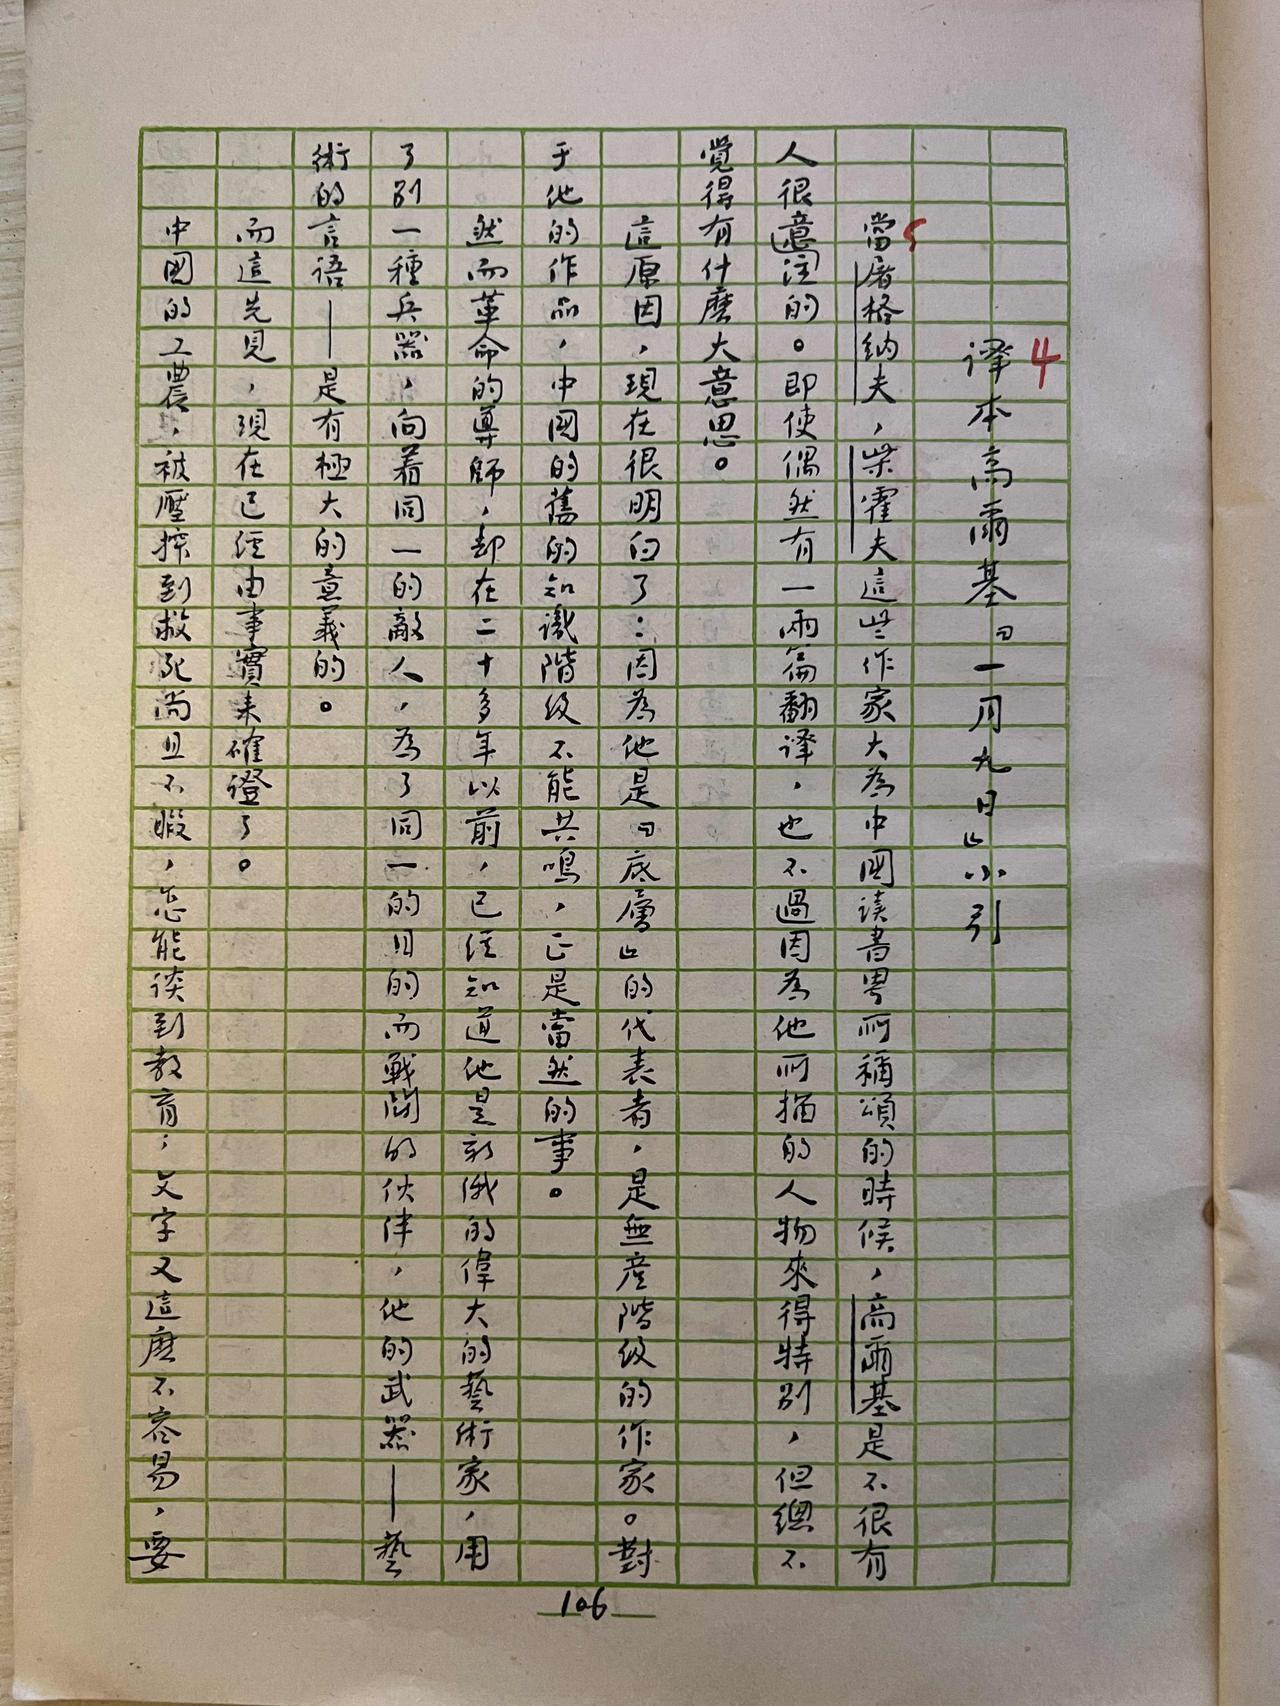 4
譯本高爾基『一月九日』小引
5
當屠格納夫，柴霍夫這些作家大為中國读書界所稱頌的時候，高爾基是不很有
人很意注的。即使偶然有一兩篇翻譯，也不過因為他所描的人物來得特别，但總不
覺得有什麽大意思。
這原因，現在很明白了：因為他是『底層』的代表者，是無產階级的作家。對
于他的作品，中國的舊的知識階级不能共鳴，正是當然的事。
然而革命的導師，却在二十多年以前，已經知道他是新俄的偉大的藝術家，用
了别一種兵器，向着同一的敵人，為了同一的目的而戰鬪的伙伴，他的武器——藝
術的言語——是有極大的意義的。
而這先見，現在已經由事實来確證了。
中國的工農，被壓搾到救死尚且不暇，怎能谈到教育；文字又這麽不容易，要
106